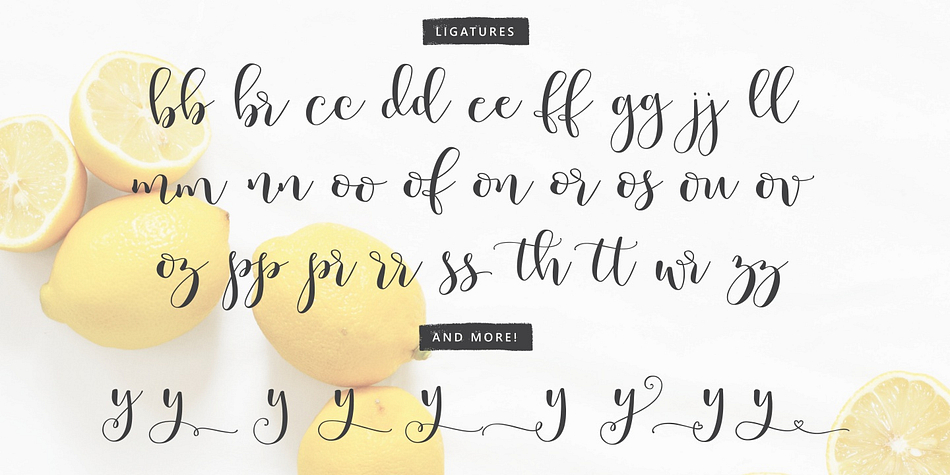 LIGATURES
bb br cc dd ee ff gg jj ll
mm nn oo of on or os ou ov
oz pp pr rr ss th tt wr zz
AND MORE!
y y y y y y y y y